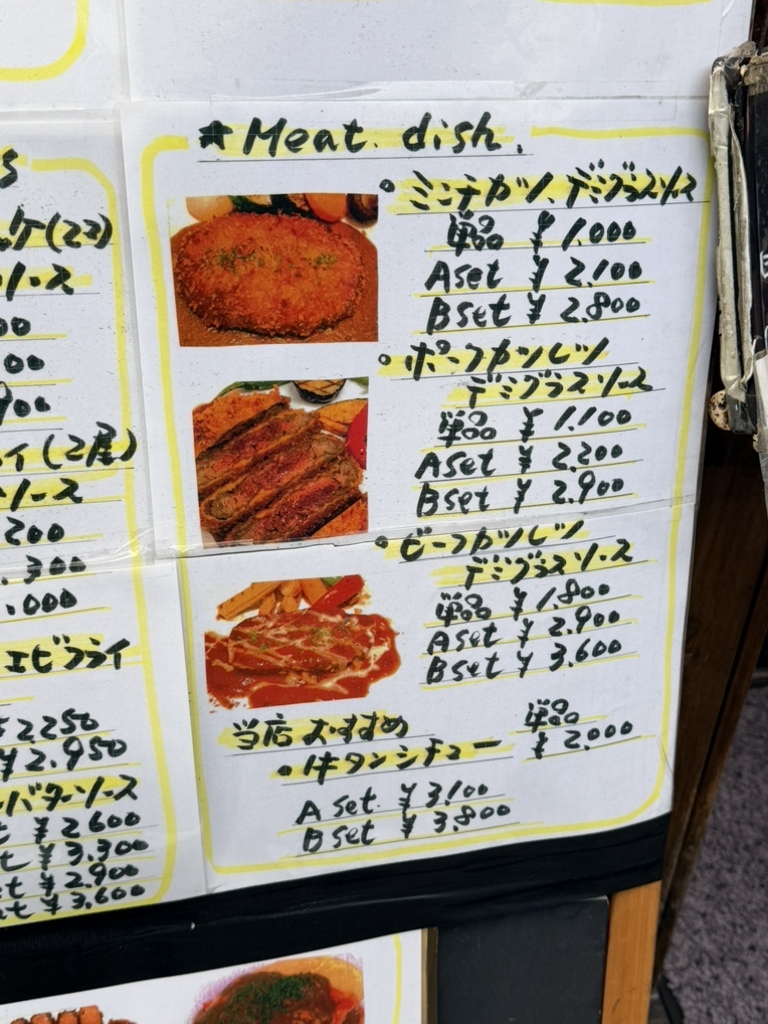 ★Meat dish.
・ミンチカツ、デミグラスソース
単品 ¥1,000
Aset ¥2,100
Bset ¥2,800
・ポークカツレツ
デミグラスソース
単品 ¥1,100
Aset ¥2,200
Bset ¥2,900
・ビーフカツレツ
デミグラスソース
単品 ¥1,800
Aset ¥2,900
Bset ¥3,600
当店おすすめ 単品
・牛タンシチュー ¥2,000
A set ¥3,100
B set ¥3,800
s
ケ(2コ)
ソース
00
00
900
イ(2尾)
ソース
200
,300
,000
エビフライ
¥2250
¥2,950
バターソース
t ¥2600
et ¥3,300
et ¥2,900
et ¥3,600